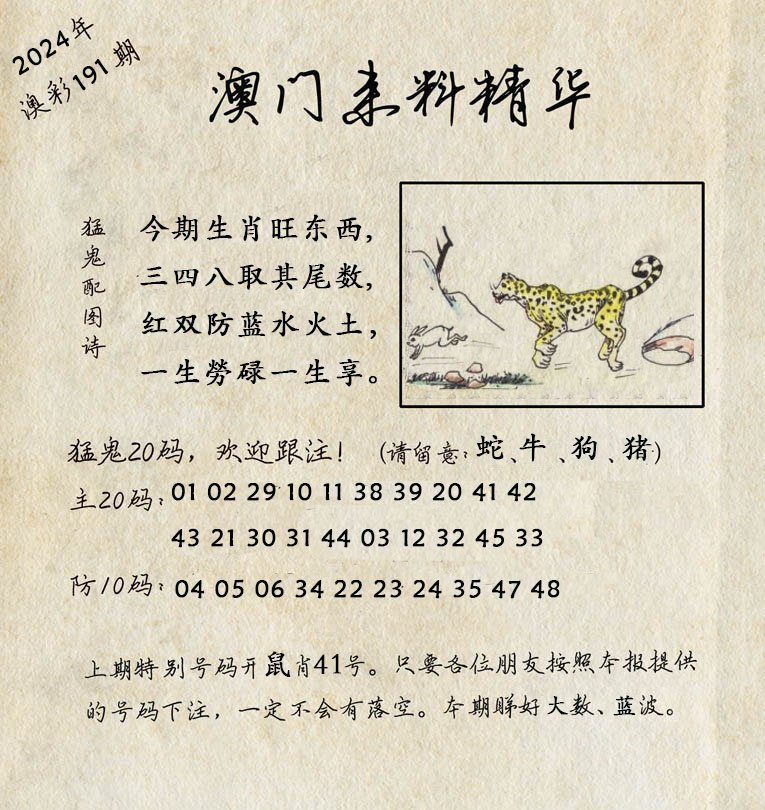 2024年
澳彩191期
澳门来料精华
猛鬼配图诗
今期生肖旺东西,
三四八取其尾数,
红双防蓝水火土,
一生勞碌一生享。
猛鬼20码,欢迎跟注! (请留意:蛇、牛、狗、猪)
主20码:01 02 29 10 11 38 39 20 41 42
43 21 30 31 44 03 12 32 45 33
防10码:04 05 06 34 22 23 24 35 47 48
上期特别号码开鼠肖41号。只要各位朋友按照本报提供
的号码下注,一定不会有落空。本期睇好大数、蓝波。